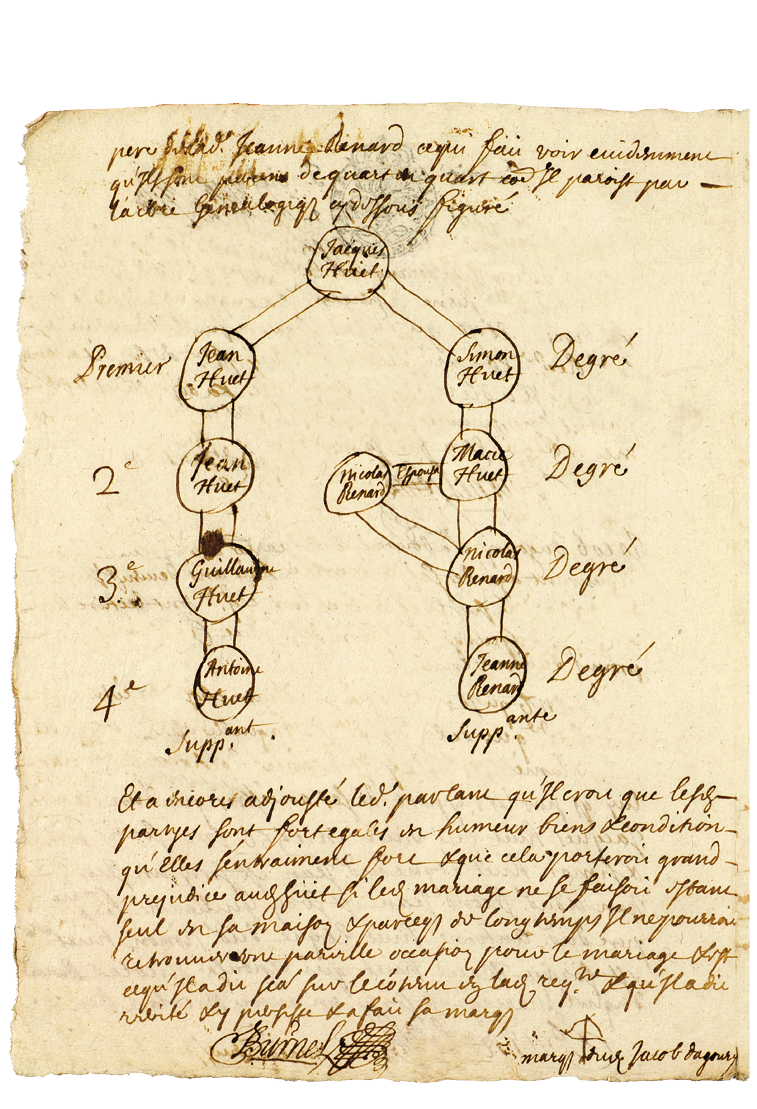 pere de lad. Jeanne Renard ce qui fait voir evidemment
qu'Ils sont parens de quart en quart co[m]e Il paroist par
l'arbre Genealogiq3 cy dessous figuré
Jacques
Huet
Premier
Jean
Huet
Simon
Huet
Degré
2e
Jean
Huet
Nicolas
Renard
Espouse
Marie
Huet
Degré
3.e
Guillaume
Huet
Nicolas
Renard
Degré
4e
Antoine
Huet
Jeanne
Renard
Degré
Supp.ant
Supp.ante
Et a encores adjousté led. parlant qu'Il croit que lesd
partyes sont fort egales en humeur biens & condition
qu'Elles s'entraiment fort & que cela porteroit grand
prejudice aud Huet si led mariage ne se faisoit estant
seul en sa maison & parceq3 de longtemps Il ne pourroit
retrouver une pareille occasion pour le mariage &
ce qu'Il a dit sur le contenu en lad reqte & qu'Il a dit
verité & y persiste & a fait sa marq3
marq3 dud Jacob dagoury